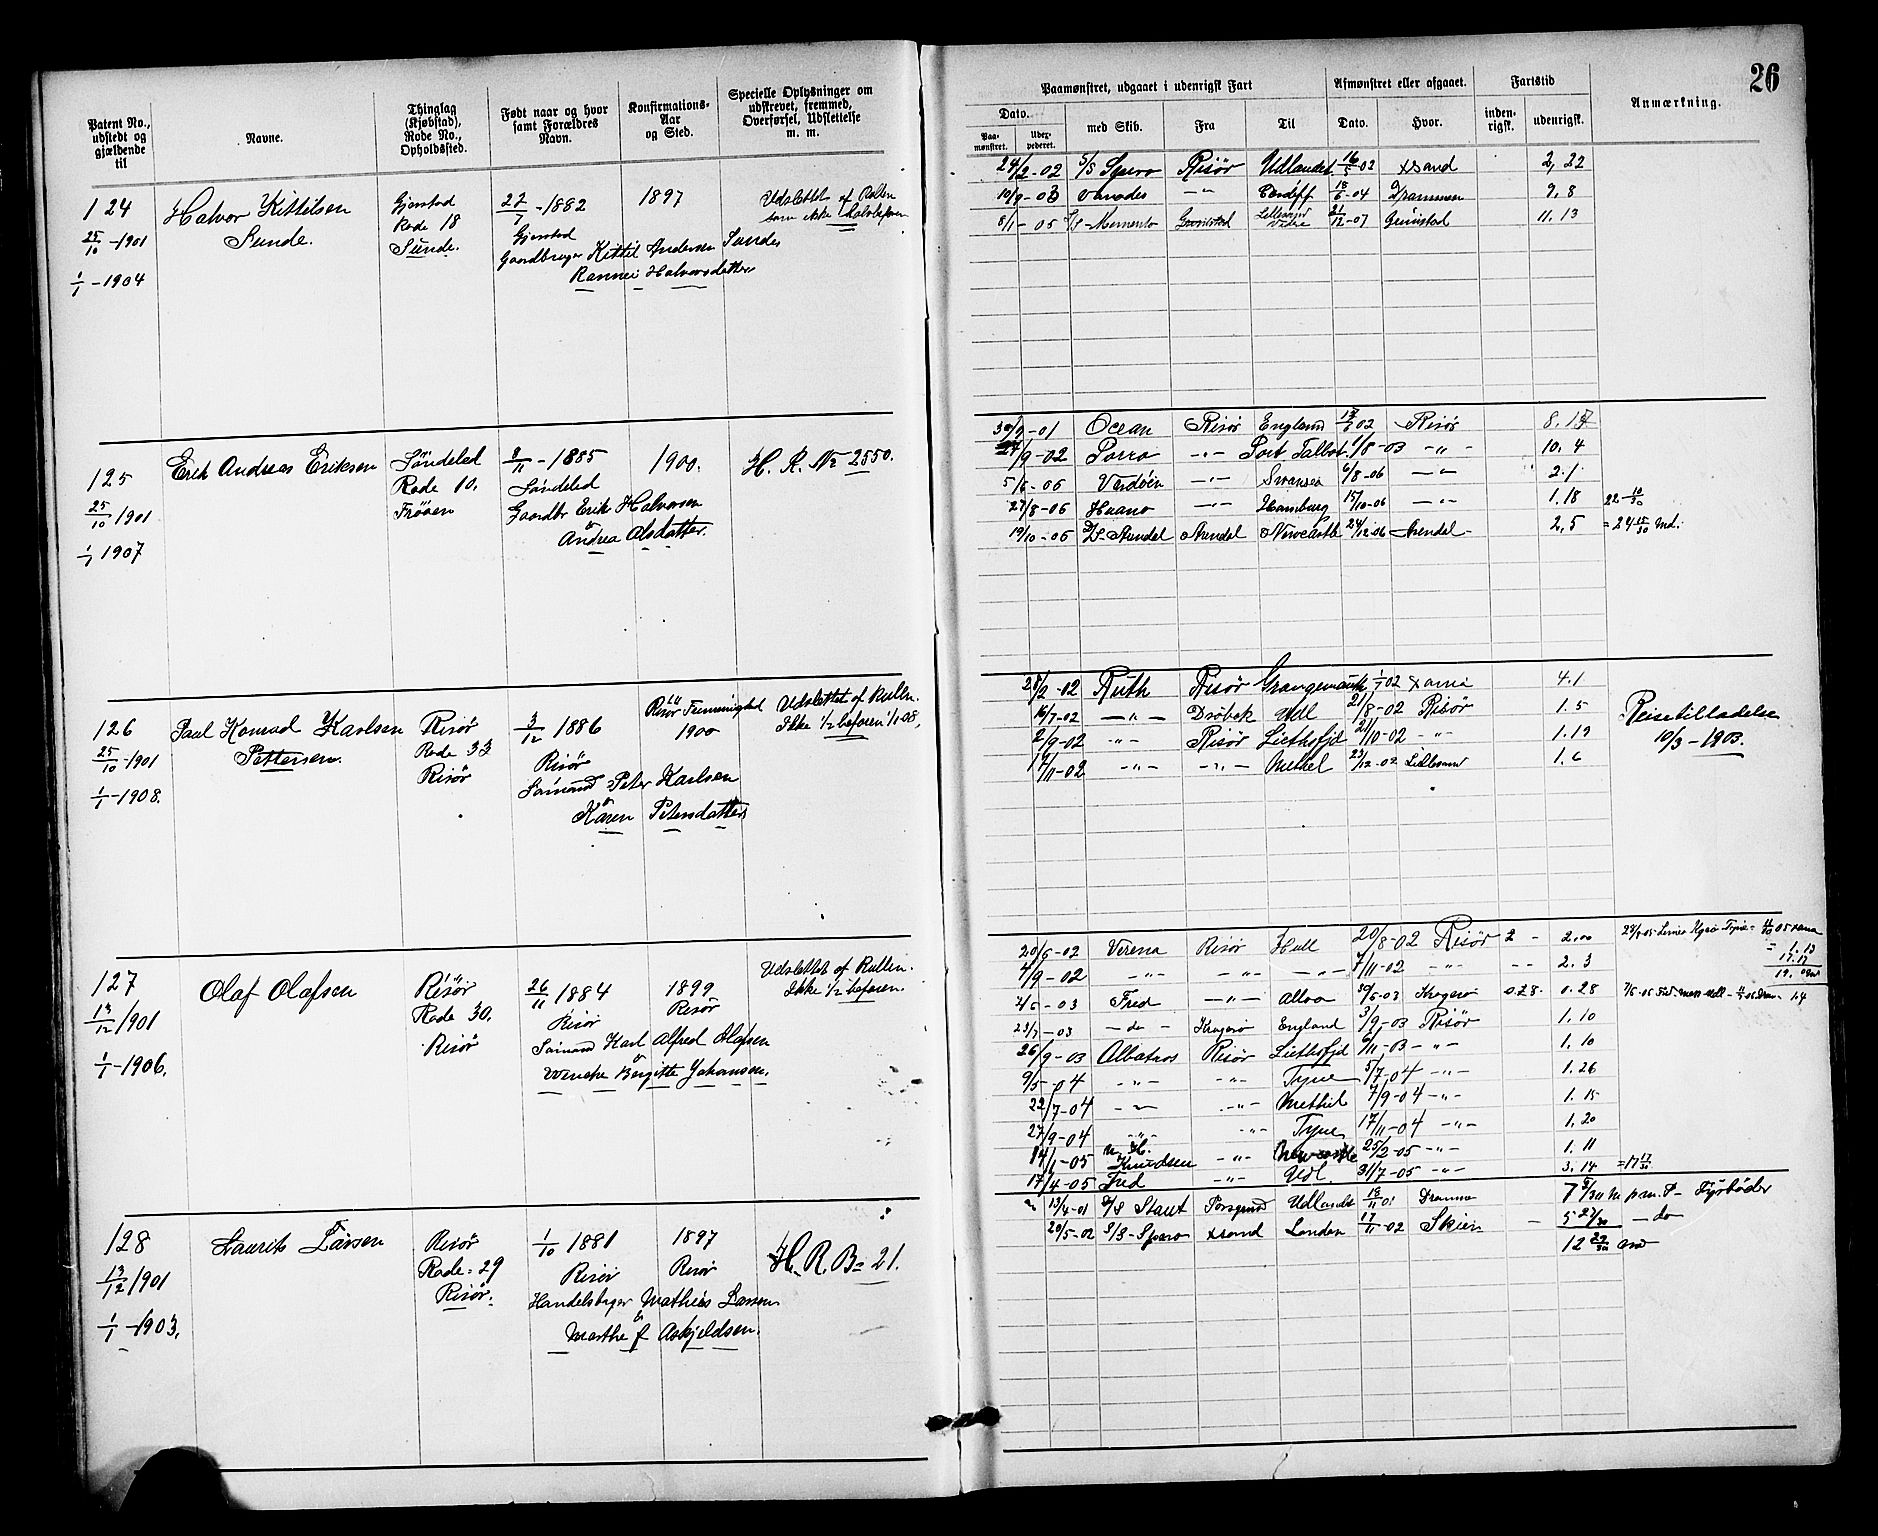 26
Patent No., udstedt og gjældende til
Navne.
Thinglag (Kjøbstad), Rode No., Opholdssted.
Født naar og hvor samt Forældres Navn.
Konfirmations-Aar og Sted.
Specielle Oplysninger om udskrevet, fremmed, Overførsel, Udslettelse m. m.
Paamønstret, udgaaet i udenrigsk Fart
Afmønstret eller afgaaet.
Fartstid
Anmærkning.
Dato.
Paa-mønstret.
med Skib.
Fra
Til
Dato.
Hvor.
inden-rigsk.
udenrigsk.
124
25/10 -1901
1/1 -1904
Halvor Kittilsen
Sunde.
Gjerstad
Rode 18
Sunde.
27/7 -1882
Gjerstad
Gaardbruger Kittil Andersen Sunde
Rannei Halvorsdatter
1897
Udslettet af Rullen
som ikke
24/2-02 S/S Spero Risør Udlandet 16/5-02 xsand 2,22
10/9-03 Vanadis -"- Cardiff 18/6-04 Drammen 9.8
8/1-05 S/S Memento 21/12-07 Grimstad 11.13
125
25/10 1901
1/1 1907
Erik Andreas Eriksen
Søndeled
Rode 10.
Frøven
8/11 -1885
Søndeled
Gaardbr Erik Halvorsen
& Andrea Olsdatter.
1900.
H. R. No 2550.
30/9-01 Ocean Risør England 02 Risør 8.
/9-02 Porro -"- Port Talbot /8-03 -"- 10.4
5/6-06 Vardøen -"- Swansea 6/8-06 -"- 2.1
27/8-06 Huano -"- Hamburg 15/10-06 -"- 1.18
19/10-06 D/S Arendal Arendal Newcastle 24/12-06 Arendal 2.5
126
25/10 -1901
1/1 -1908.
Paul Konrad Karlsen
Pettersen.
Risør
Rode 33
Risør
3/12 1886
Risør
Sømand Peter Karlsen
& Karen Petersdatter
Risør
1900
Udslettet af Rullen.
Ikke 1/2 befaren 1/1-08.
28/2-02 Ruth Risør Grangemouth 1/7 02 xania 4.1
16/7-02 -"- Drøbak Udl 21/8-02 Risør 1.5
2/9-02 -"- Risør Liethsfjd 21/10-02 -"- 1.19
17/11-02 -"- -"- Methel 23/12-02 Lillesand 1.6
Reisetilladelse
10/3-1903.
127
13/12 1901
1/1 -1906.
Olaf Olafsen
Risør
Rode 30.
Risør
26/11 1884
Risør
Sømand Karl Alfred Olafsen
& Wencke Birgitte Johansen.
1899
Risør
Udslettet af Rullen.
Ikke 1/2 befaren.
20/6-02 Verena Risør Hull 20/8-02 Risør 2 - 2.00
4/9-02 -"- -"- -"- 7/11-02 -"- -- 2.3
2/5-03 Fred -"- Alloa 30/6-03 Kragerø 0.28. 0.28
23/7-03 -do- Kragerø England 3/9-03 Risør 1.10
26/9-03 Albatros Risør Liethsfjd 6/11-03 -"- 1.10
9/5-04 -"- -"- Tyne 5/7-04 -"- 1.26
22/7-04 -"- -"- Methil 7/9-04 -"- 1.15
27/9-04 -"- -"- Tyne 17/11-04 -"- 1.20
14/1-05 Knudsen -"- Newcastle 25/2-05 -"- 1.11
17/4-05 Fred -"- Udl. 31/7-05 -"- 3.14
128
13/12 1901
1/1 -1903.
Laurits Larsen
Risør
Rode = 29
Risør.
1/10 1881
Risør
Handelsborger Mathias Larsen
& Marthe f Askjeldsen.
1897
Risør
H. R. B = 21.
13/4-01 D/S Staut Porsgrund Udlandet 18/11 01
20/5-02 S/S Spero xsand London 17/11-02 Skien - 5 27/30 -do
12